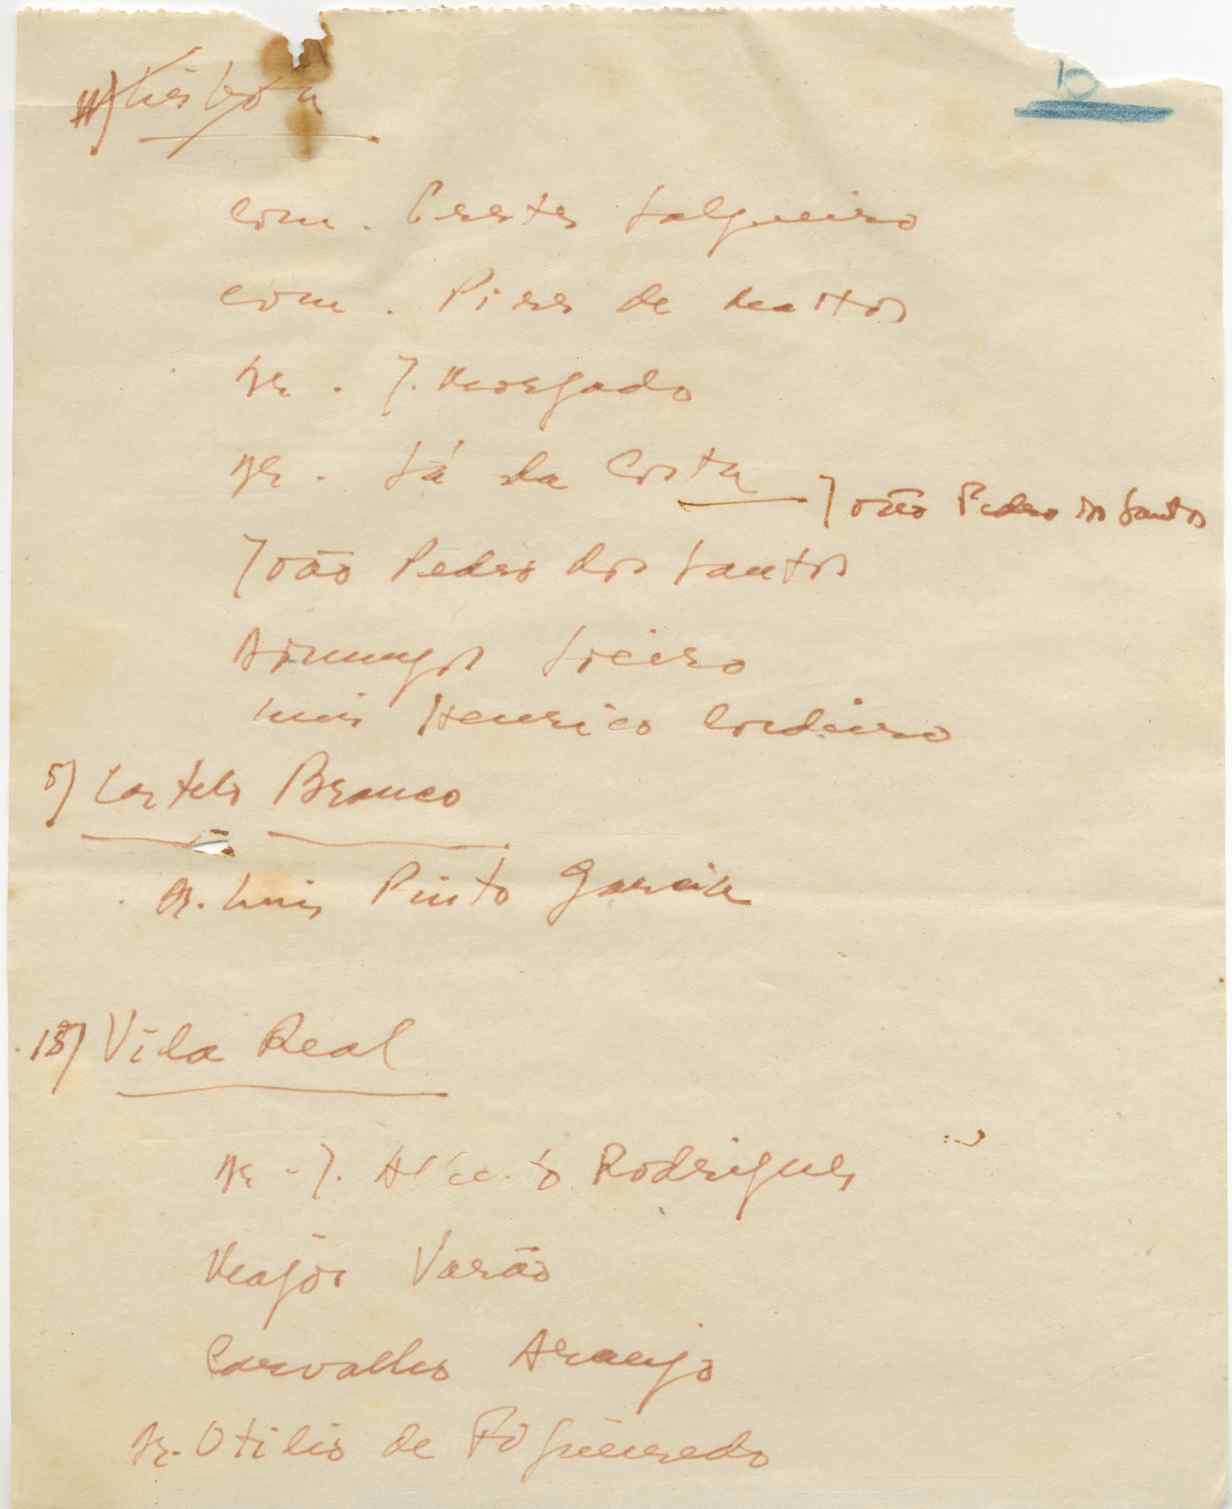 10
11) Lisboa
Com. Prestes Salgueiro
Com. Pires de Mattos
Dr. J. Morgado
Dr. Sá da Costa João Pedro dos Santos
João Pedro dos Santos
Domingos
Luis Henrico Cordeiro
5) Castelo Branco
Dr. Luis Pinto Garcia
18) Vila Real
Dr. J. Rodrigues
Major Varão
Carvalho Araujo
Dr. Otilio de Figueiredo